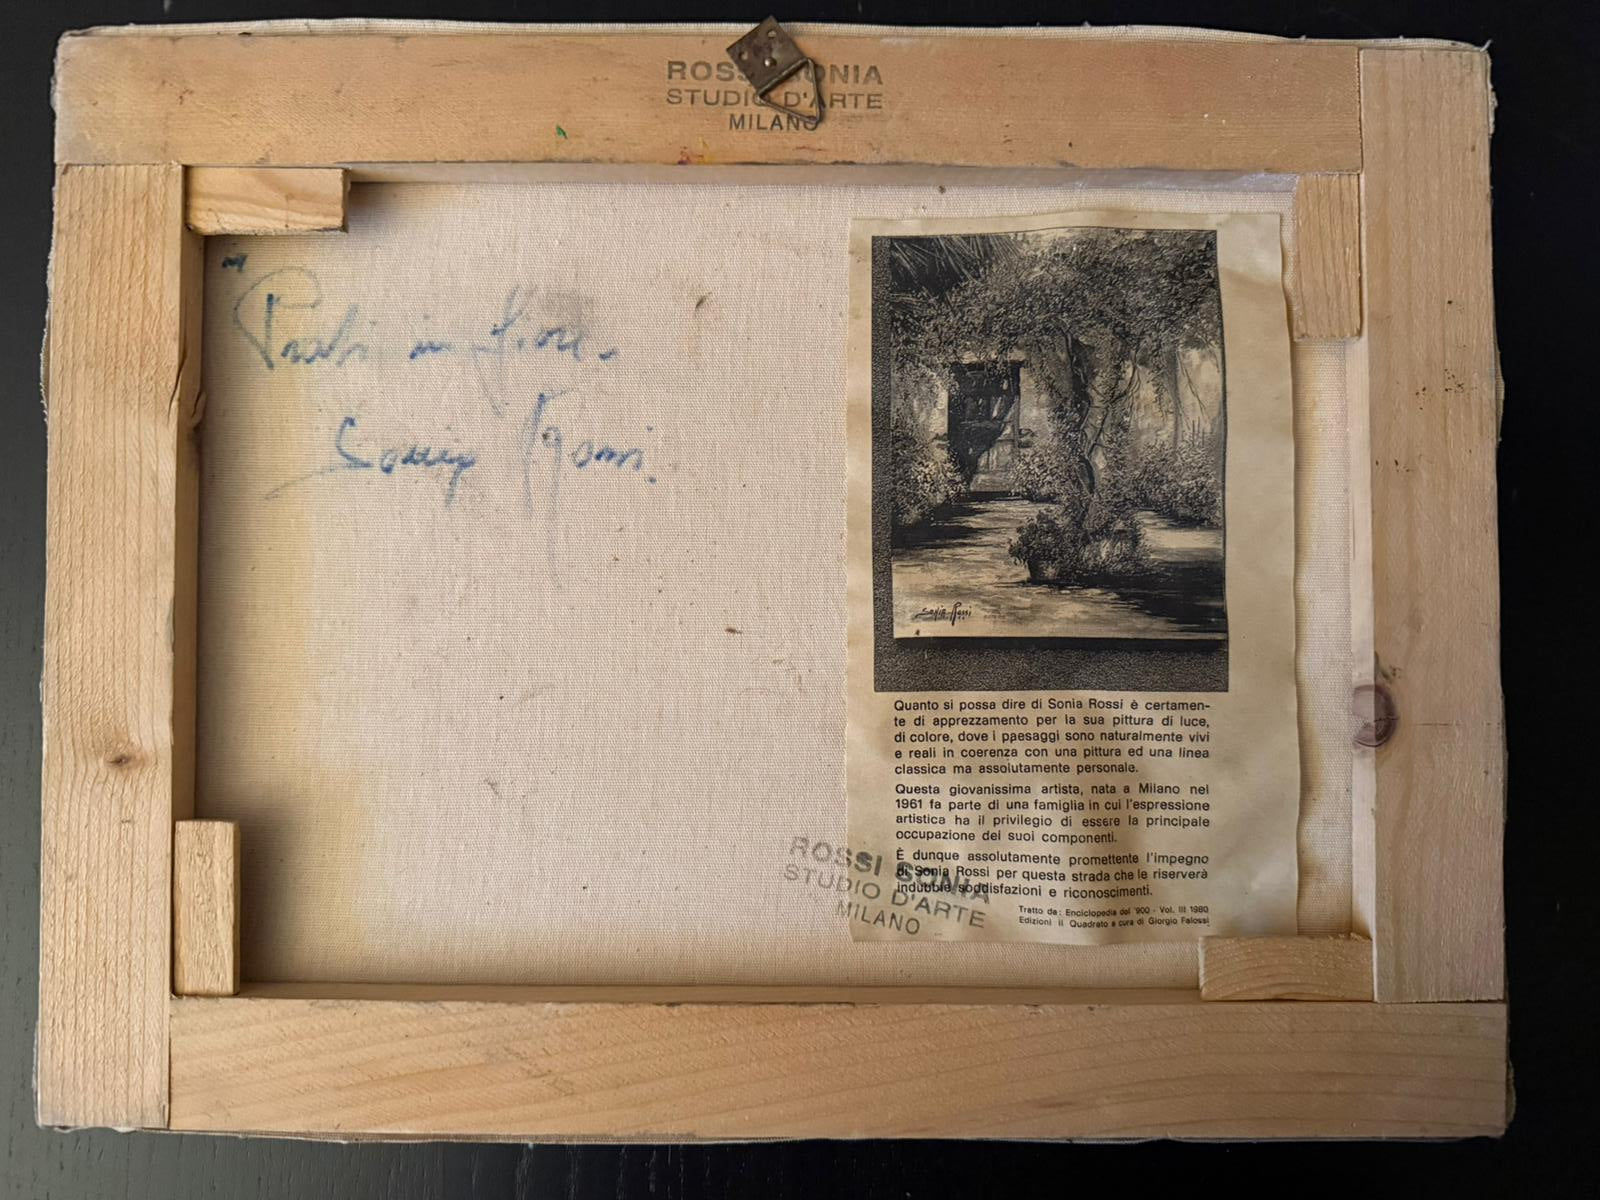 ROSSI SONIA
STUDIO D'ARTE
MILANO
" Prati in fiore.
Sonia Rossi.
Sonia Rossi
Quanto si possa dire di Sonia Rossi è certamen-
te di apprezzamento per la sua pittura di luce,
di colore, dove i paesaggi sono naturalmente vivi
e reali in coerenza con una pittura ed una linea
classica ma assolutamente personale.
Questa giovanissima artista, nata a Milano nel
1961 fa parte di una famiglia in cui l'espressione
artistica ha il privilegio di essere la principale
occupazione dei suoi componenti.
È dunque assolutamente promettente l'impegno
di Sonia Rossi per questa strada che le riserverà
indubbie soddisfazioni e riconoscimenti.
Tratto da: Enciclopedia del '900 - Vol. III 1980
Edizioni il Quadrato a cura di Giorgio Falossi
ROSSI SONIA
STUDIO D'ARTE
MILANO